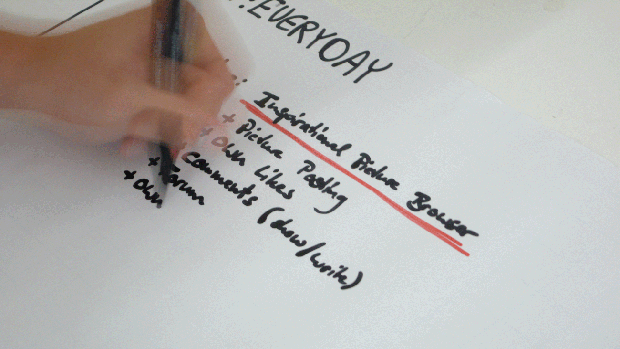 EVERYDAY
Inspirational Picture Browser
+ Picture Posting
+ Own Likes
Comments (show/write)
+ Forum
+ Own